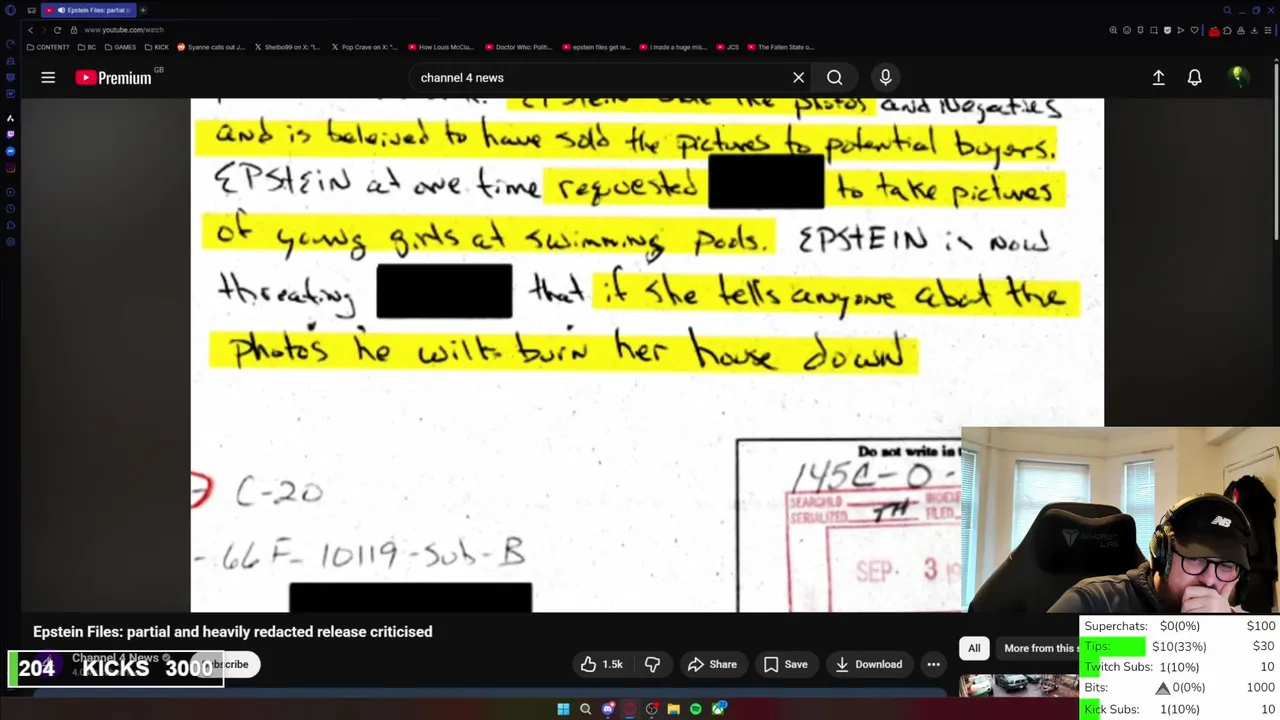 Epstein Files: partial
www.youtube.com/watch
CONTENT? BC GAMES KICK Syanne calls out J... Shelbo99 on X: "I... Pop Crave on X: "... How Louis McClu... Doctor Who: Politi... epstein files get re... I made a huge mis... JCS The Fallen State o...
Premium GB
channel 4 news
EPSTEIN the photos and negatives
and is beleived to have sold the pictures to potential buyers.
EPSTEIN at one time requested to take pictures
of young girls at swimming pools. EPSTEIN is now
threating that if she tells anyone about the
photos he will burn her house down
C-20
66F-10119-Sub-B
Do not write in
145C-0-
SEARCHED
SERIALIZED TH
FILED
SEP 3
NB
Epstein Files: partial and heavily redacted release criticised
Channel 4 News
204 KICKS 3000
1.5k Share Save Download
All More from this
Superchats: $0(0%) $100
Tips: $10(33%) $30
Twitch Subs: 1(10%) 10
Bits: 0(0%) 1000
Kick Subs: 1(10%) 10